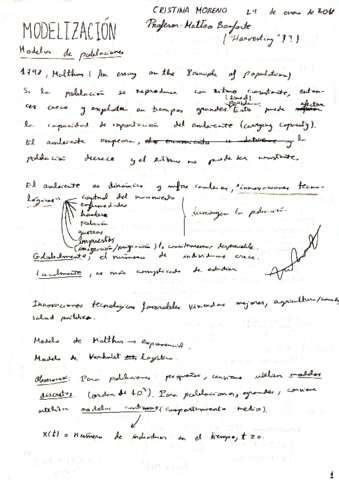 CRISTINA MORENO 29 de enero de
MODELIZACIÓN Profesor: Matteo Bonforte
("Harvesting"??)
Modelos de poblaciones
1798, Malthus (An essay on the Principle of population)
Si la población se reproduce con ritmo constante, enton-
ces crece y explota en tiempos grandes. Esto puede afectar
la capacidad de soportación del ambiente (carrying capacity).
El ambiente empeora, y la
población decrece y el ritmo no puede ser constante.
El ambiente es dinámico y sufre cambios, "innovaciones tecno-
lógicas"
control del nacimiento
enfermedades
hambre
polución
guerras
impuestos
disminuyen la población.
(inmigración/emigración) lo consideraremos despreciable.
Globalmente, el número de individuos crece.
Localmente, es más complicado de estudiar
Innovaciones tecnológicas favorables: viviendas mejores, agricultura/
salud pública.
Modelo de Malthus → exponencial.
Modelo de Verhulst logístico.
Observación: Para poblaciones pequeñas, conviene utilizar modelos
discretos (orden de 10³). Para poblaciones grandes, conviene
utilizar modelos continuos (comportamiento medio).
x(t) = número de individuos en el tiempo, t ≥ 0.
1